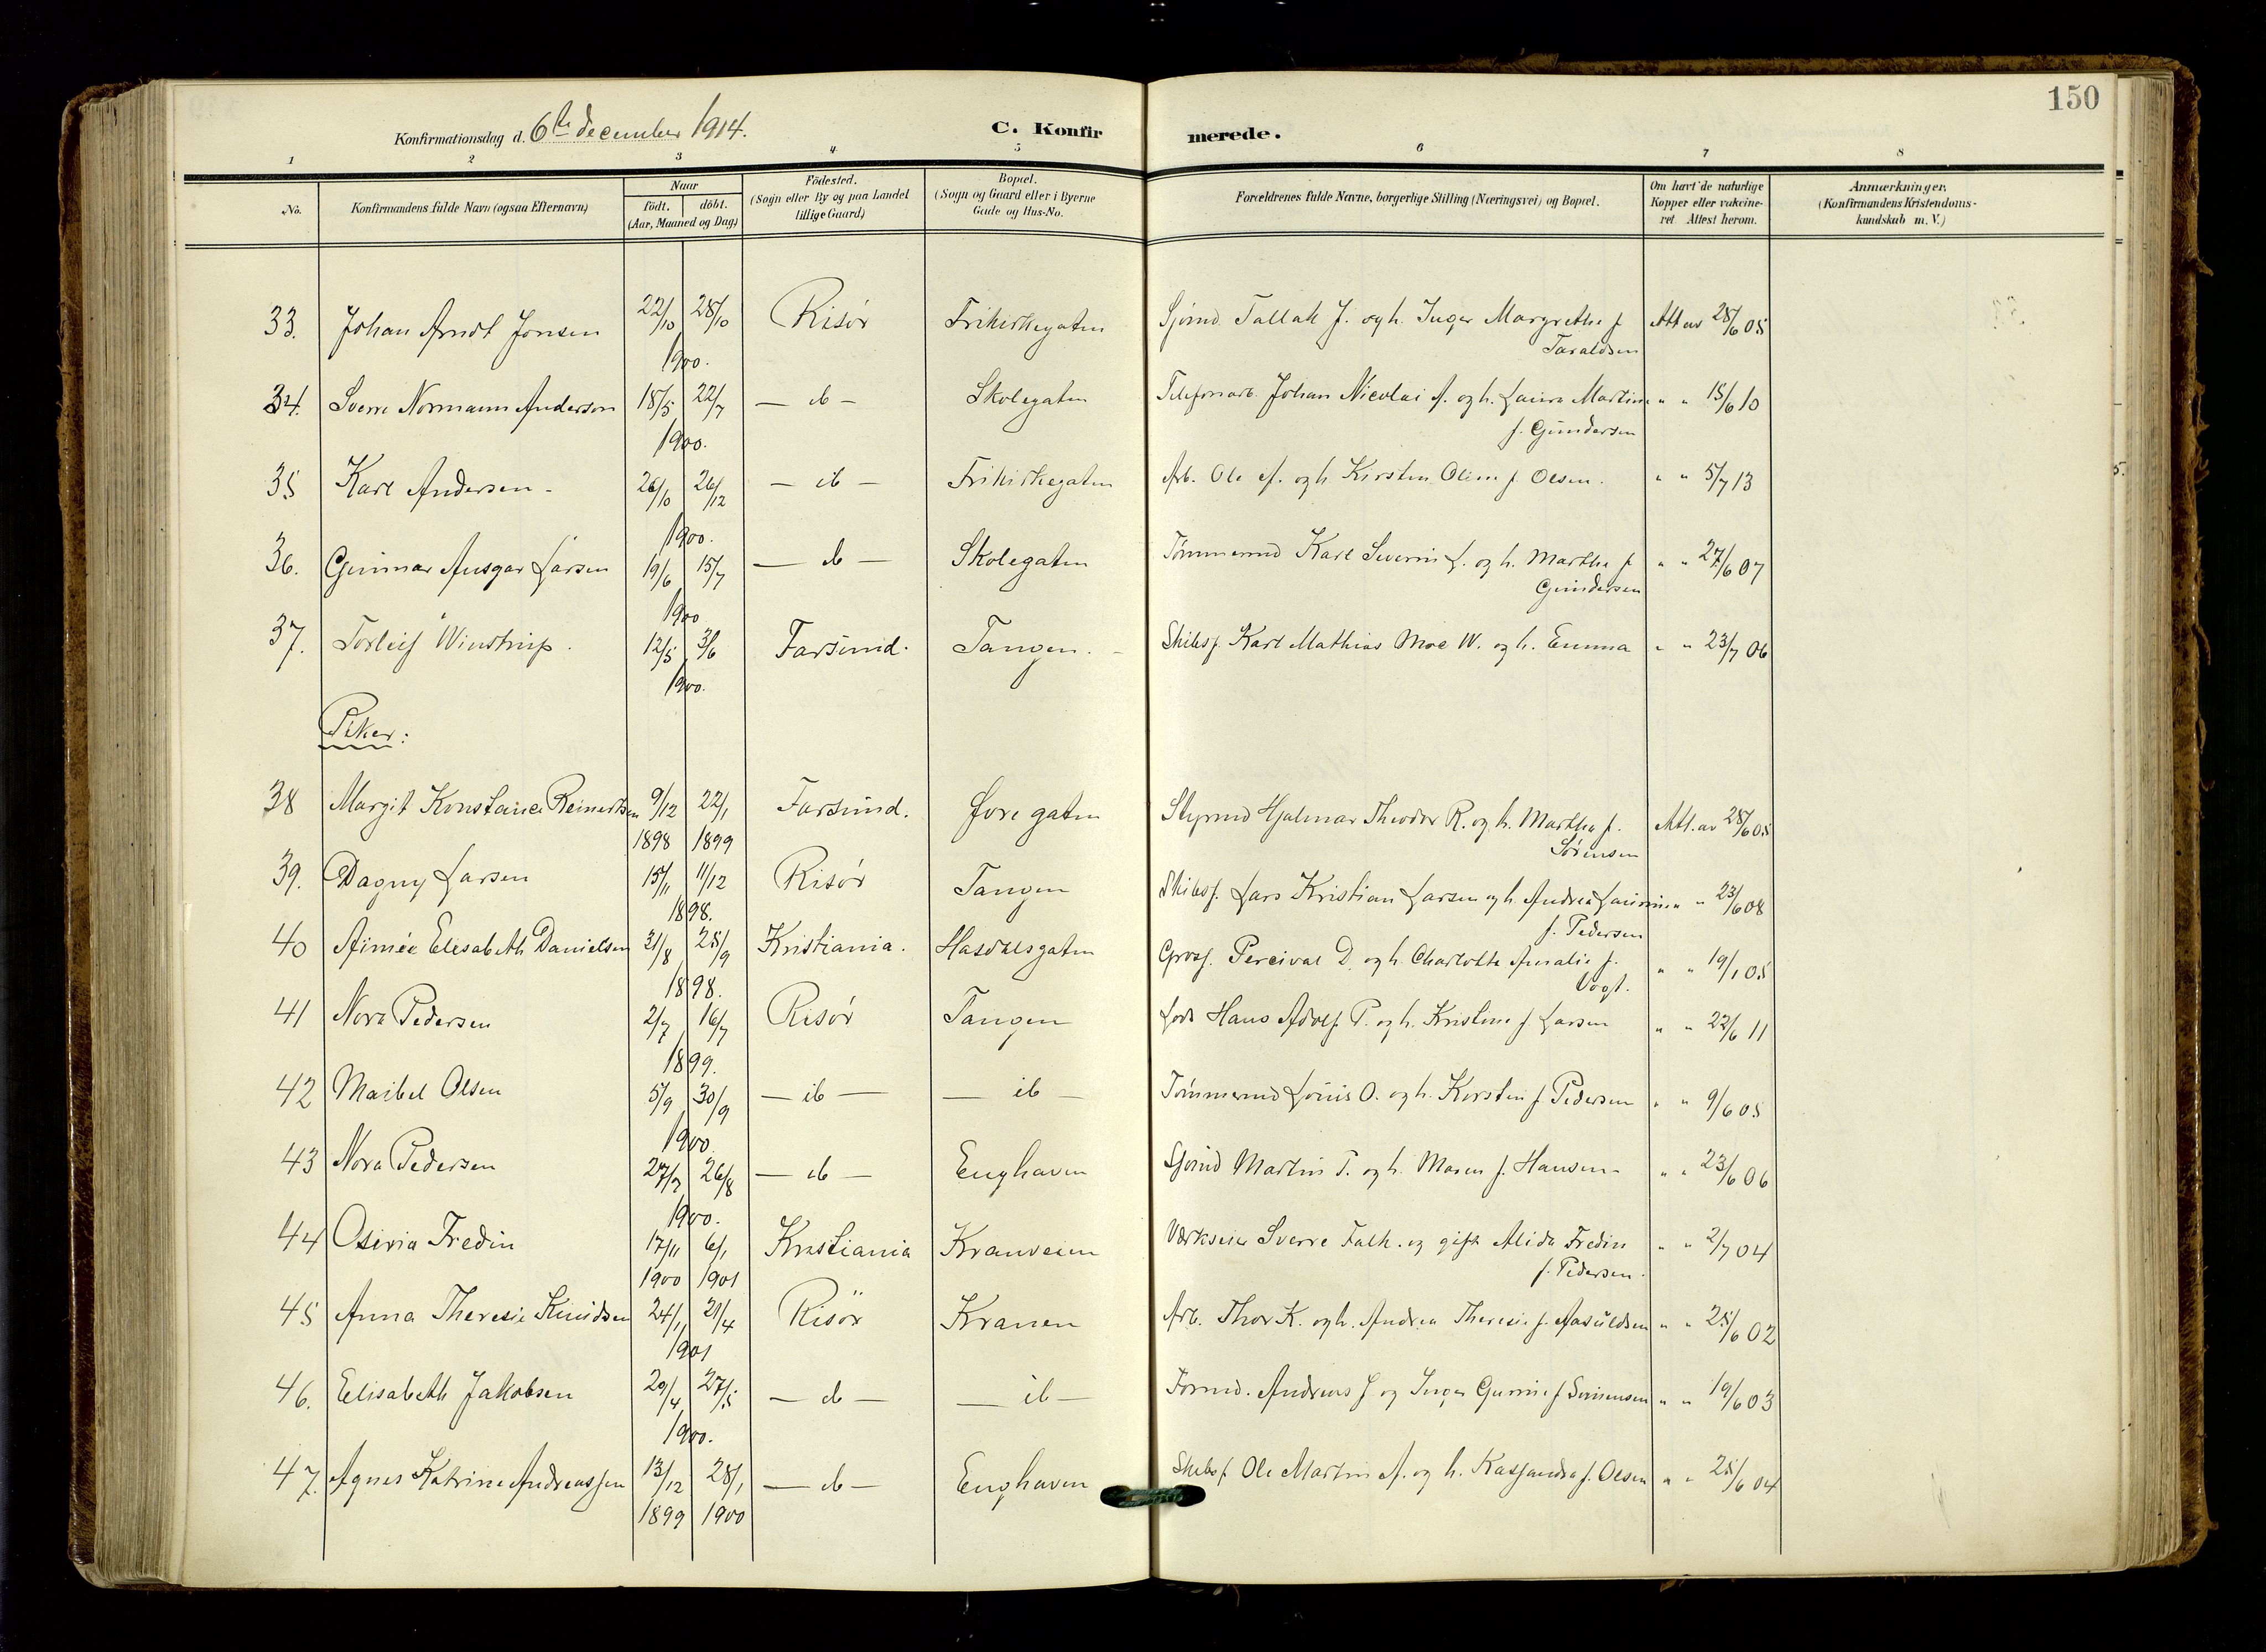 150
Konfirmationsdag d. 6te december 1914.
C. Konfirmerede.
1 2 3 4 5 6 7 8
No.
Konfirmandens fulde Navn (ogsaa Efternavn)
Naar
födt. döbt.
(Aar, Maaned og Dag)
Födested.
(Sogn eller By og paa Landet
tillige Gaard)
Bopæl.
(Sogn og Gaard eller i Byerne
Gade og Hus-No.
Forældrenes fulde Navne, borgerlige Stilling (Næringsvei) og Bopæl.
Om havt de naturlige
Kopper eller vakcine-
ret. Attest herom.
Anmærkninger.
(Konfirmandens Kristendoms-
kundskab m. V.)
33. Johan Arndt Jonsen 22/10 28/10 Risør Frikirkegaten Sjømd. Tallak J. og h. Inger Margrethe f. Att av 28/6 05
1900. Taraldsen
34. Sverre Normann Anderson 18/5 22/7 — ib — Skolegaten Telefonarb. Johan Nicolai A. og h. Laura Martine " " 15/6 10
1900. f. Gundersen
35 Karl Andersen - 26/10 26/12 — ib — Frikirkegaten Arb. Ole A. og h. Kirsten Oline f. Olsen. " " 5/7 13
1900.
36. Gunnar Ansgar Larsen 19/6 15/7 — ib — Skolegaten Tømmermd Karl Severin L. og h. Marthe f. " " 27/6 07
1900 Gundersen
37. Torleif Winstrup. 12/5 3/6 Farsund. Tangen. Skibsf. Karl Mathias Moe W. og h. Emma " " 23/7 06
1900.
Piker:
38 Margit Konstance Reinertsen 9/12 22/1 Farsund. Øvregaten Styrmd Hjalmar Theodor R. og h. Marthe f. Att. av 28/6 05
1898 1899 Sørensen
39. Dagny Larsen 15/11 11/12 Risør Tangen Skibsf. Lars Kristian Larsen og h. Andrea Laurine " " 23/6 08
1898. f. Pedersen
40 Aimée Elisabeth Danielsen 31/8 25/9 Kristiania. Hasdalsgaten Gross. Percival D. og h. Charlotte Amalie f. " " 19/1 05
1898. Vogt.
41 Nora Pedersen 2/7 16/7 Risør Tangen Lods Hans Adolf P. og h. Kristine f. Larsen " " 22/6 11
1899.
42 Maibel Olsen 5/9 30/9 — ib — — ib — Tømmermd Louis O. og h. Kirsten f. Pedersen " " 9/6 05
1900.
43 Nora Pedersen 27/7 26/8 — ib — Enghaven Sjømd Martin P. og h. Maren f. Hansen " " 23/6 06
1900.
44 Osivia Fredin 17/11 6/1 Kristiania Kranveien Værkseier Sverre Falk. og gift Alida Fredin " " 2/7 04
1900 1901 f. Pedersen.
45 Anna Theresie Knudsen 24/1 21/4 Risør Kranen Arb. Thor K. og h. Andrea Theresie f. Aasuldsen " " 25/6 02
1901
46. Elisabeth Jakobsen 20/4 27/5 — ib — — ib — Formd. Andreas J og Inger Gurine f Simensen " " 19/6 03
1900.
47. Agnes Katrine Andreassen 13/12 28/1 — ib — Enghaven Skibsf. Ole Martin A. og h. Kassandra f. Olsen " " 25/6 04
1899 1900